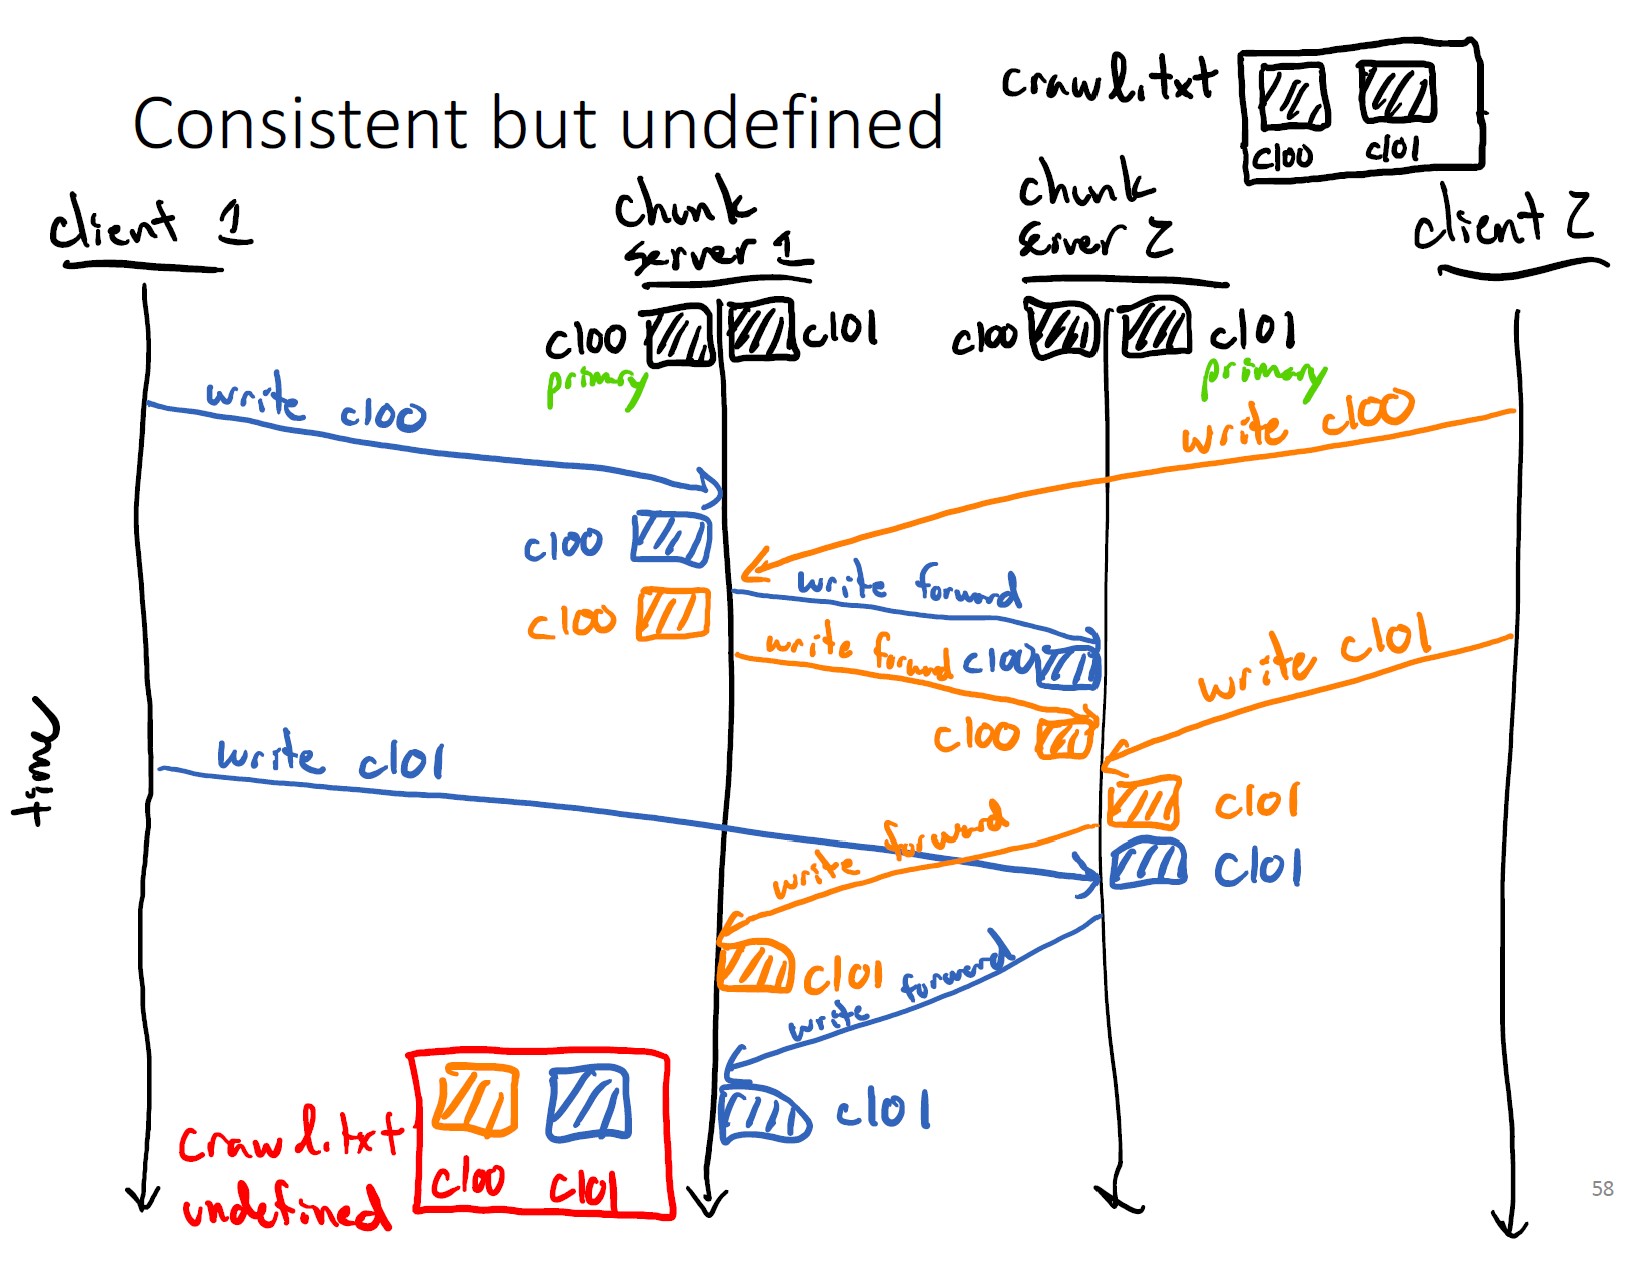 Consistent but undefined
crawl.txt
c100 c101
client 1
chunk
server 1
chunk
server 2
client 2
c100
c101
c100
c101
primary
primary
write c100
write c100
c100
write forward
c100
write forward
c100
write c101
c100
write c101
c101
write forward
c101
time
c101
write forward
c101
crawl.txt
undefined
c100 c101
58